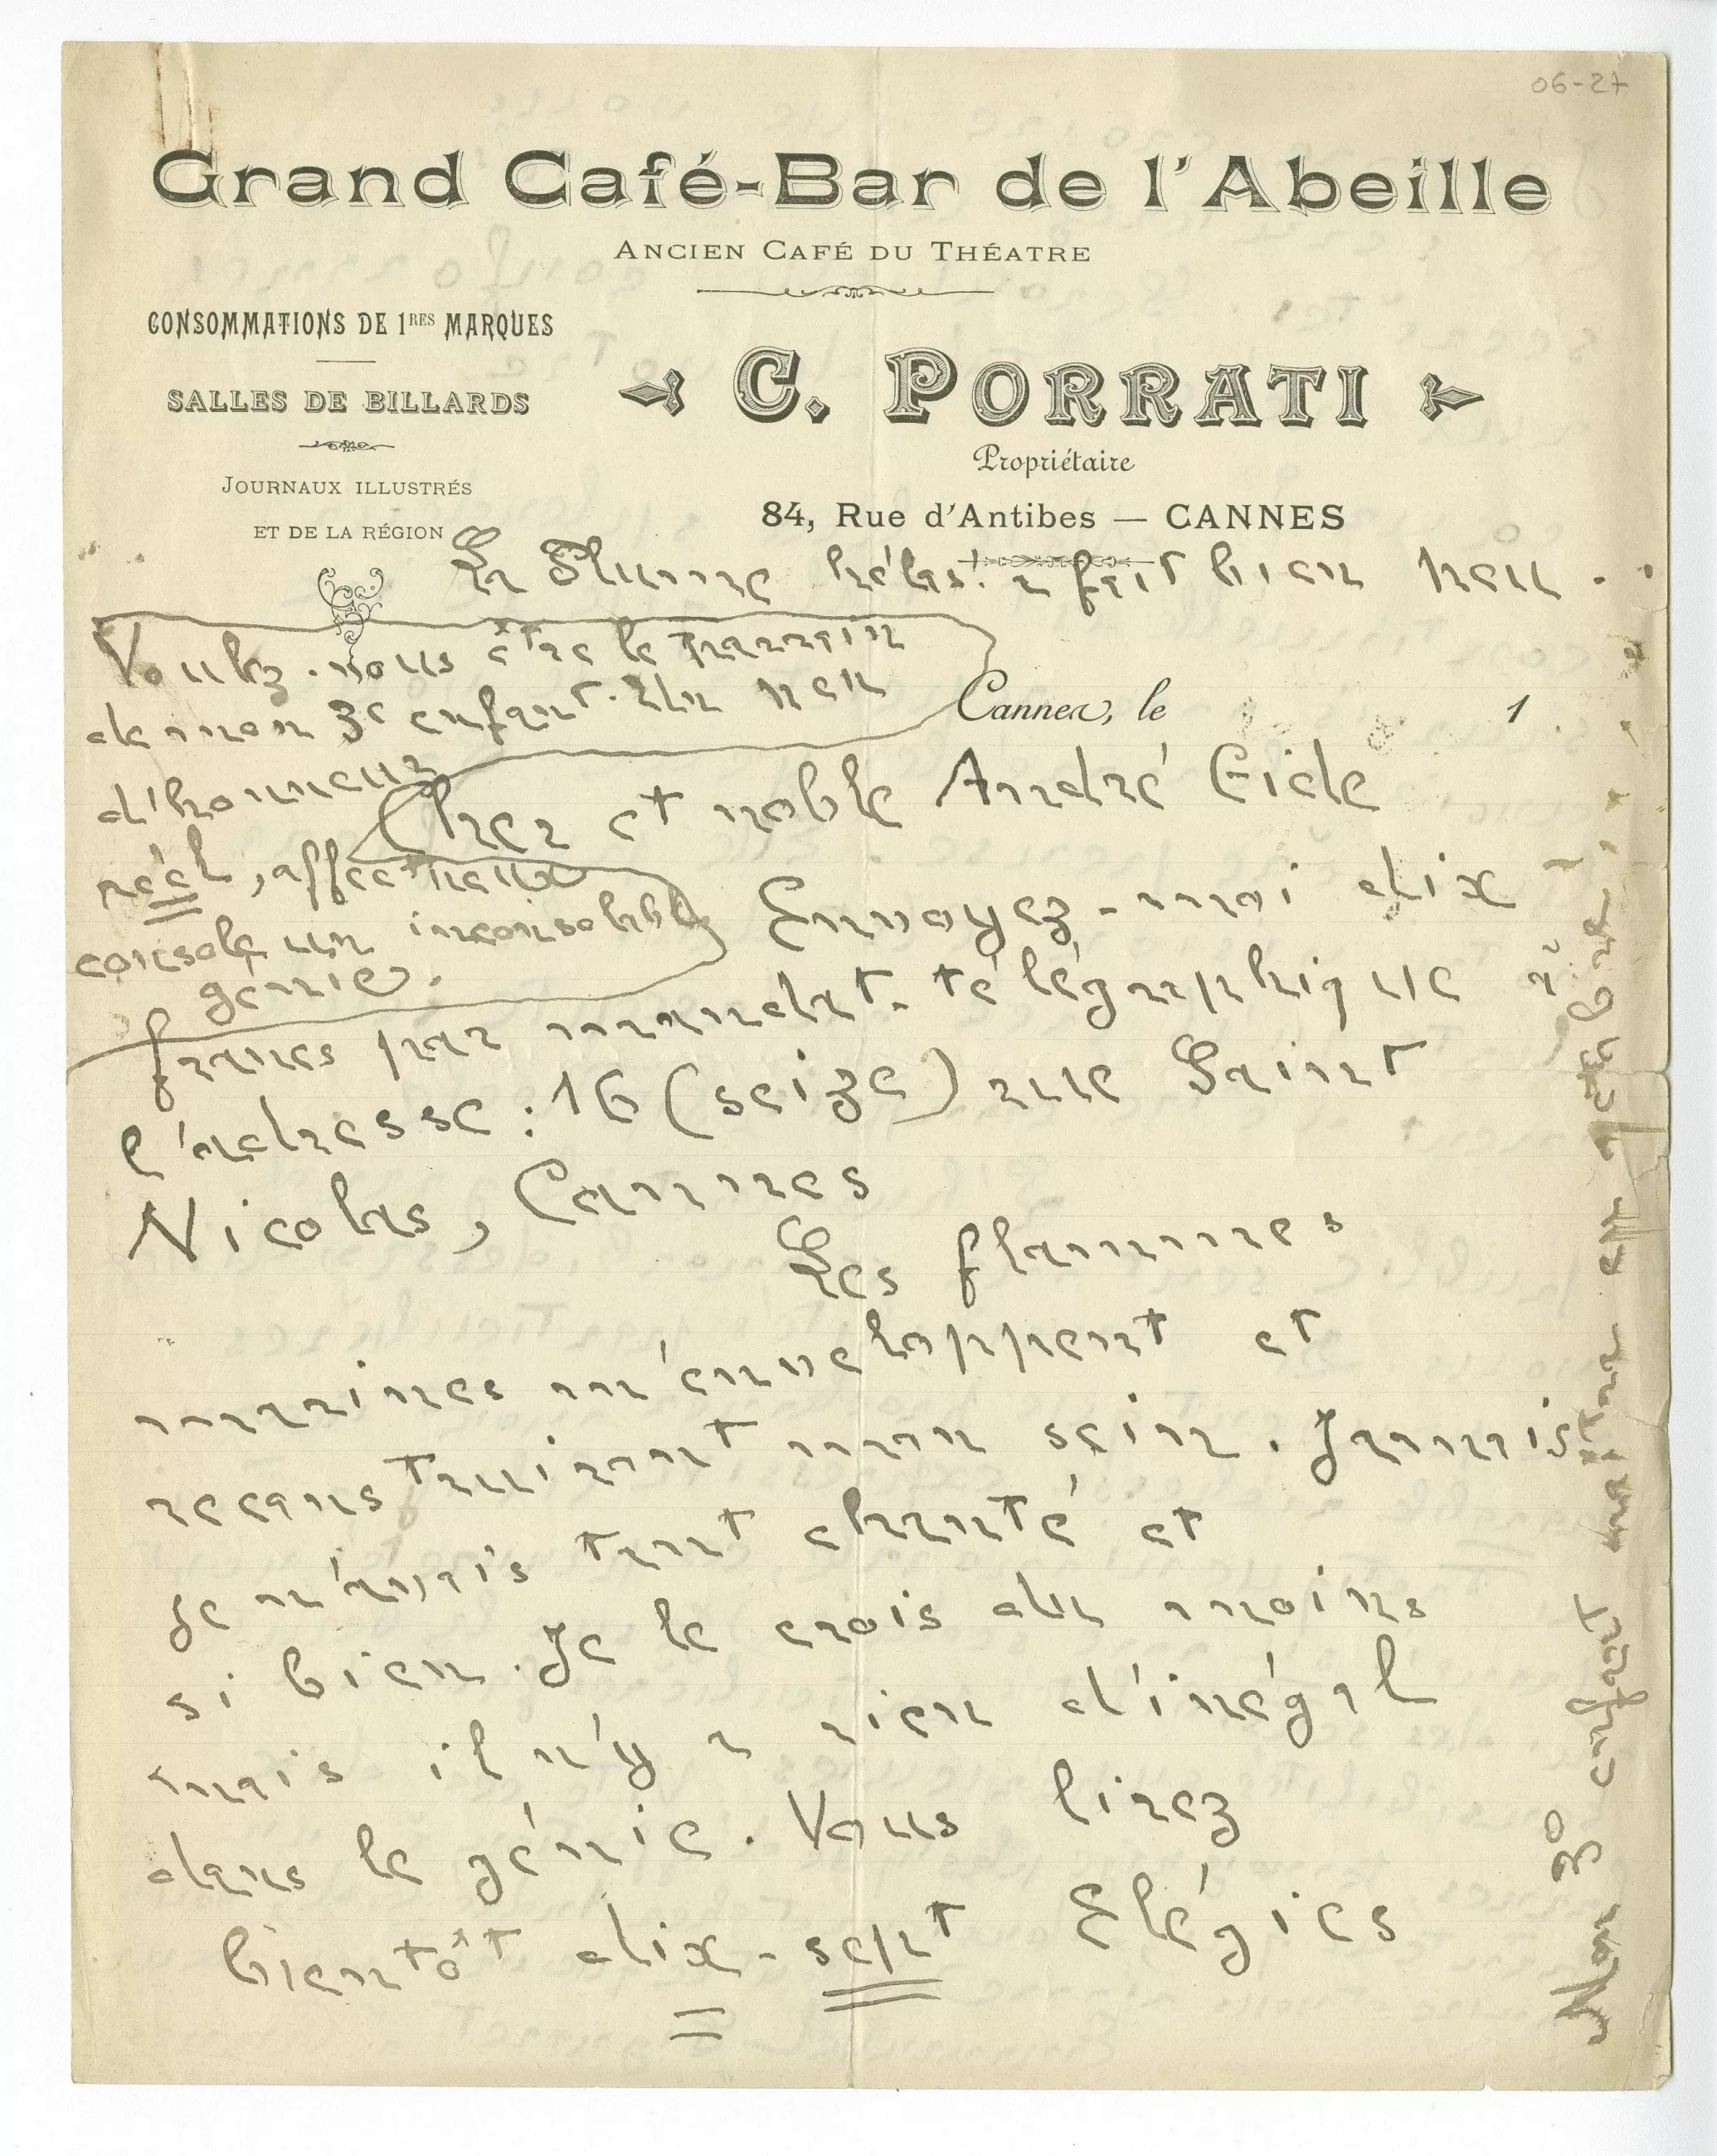 06-27
Grand Café-Bar de l'Abeille
ANCIEN CAFÉ DU THÉATRE
CONSOMMATIONS DE 1RES MARQUES
SALLES DE BILLARDS
JOURNAUX ILLUSTRÉS
ET DE LA RÉGION
C. PORRATI
Propriétaire
84, Rue d'Antibes — CANNES
La Plume hélas! a fait bien peu.
Voulez-vous être le parrain
de mon 3e enfant. Un peu
d'honneur
réel, affectueux
console un inconsolable
génie.
Cannes, le 1
Cher et noble André Gide
Envoyez-moi dix
francs par mandat-télégraphique à
l'adresse: 16 (seize) rue Saint
Nicolas, Cannes
Les flammes
marines m'enveloppent et
reconstruisent mon sein. Jamais
je n'avais tant chanté et
si bien. Je le crois du moins
mais il n'y a rien d'inégal
dans le génie. Vous lirez
bientôt dix-sept Elégies
Mon 3e enfant naîtra en